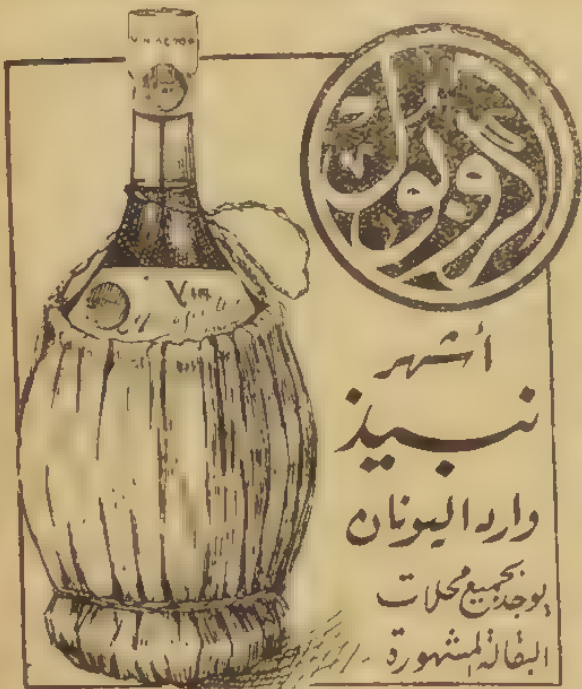 اكروبول
أشهر
نبيذ
وارد اليونان
يوجد بجميع محلات
البقالة المشهورة
Vin